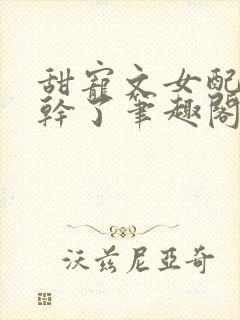 甜寵文女配
幹了筆趣閣
沃茲尼亞奇